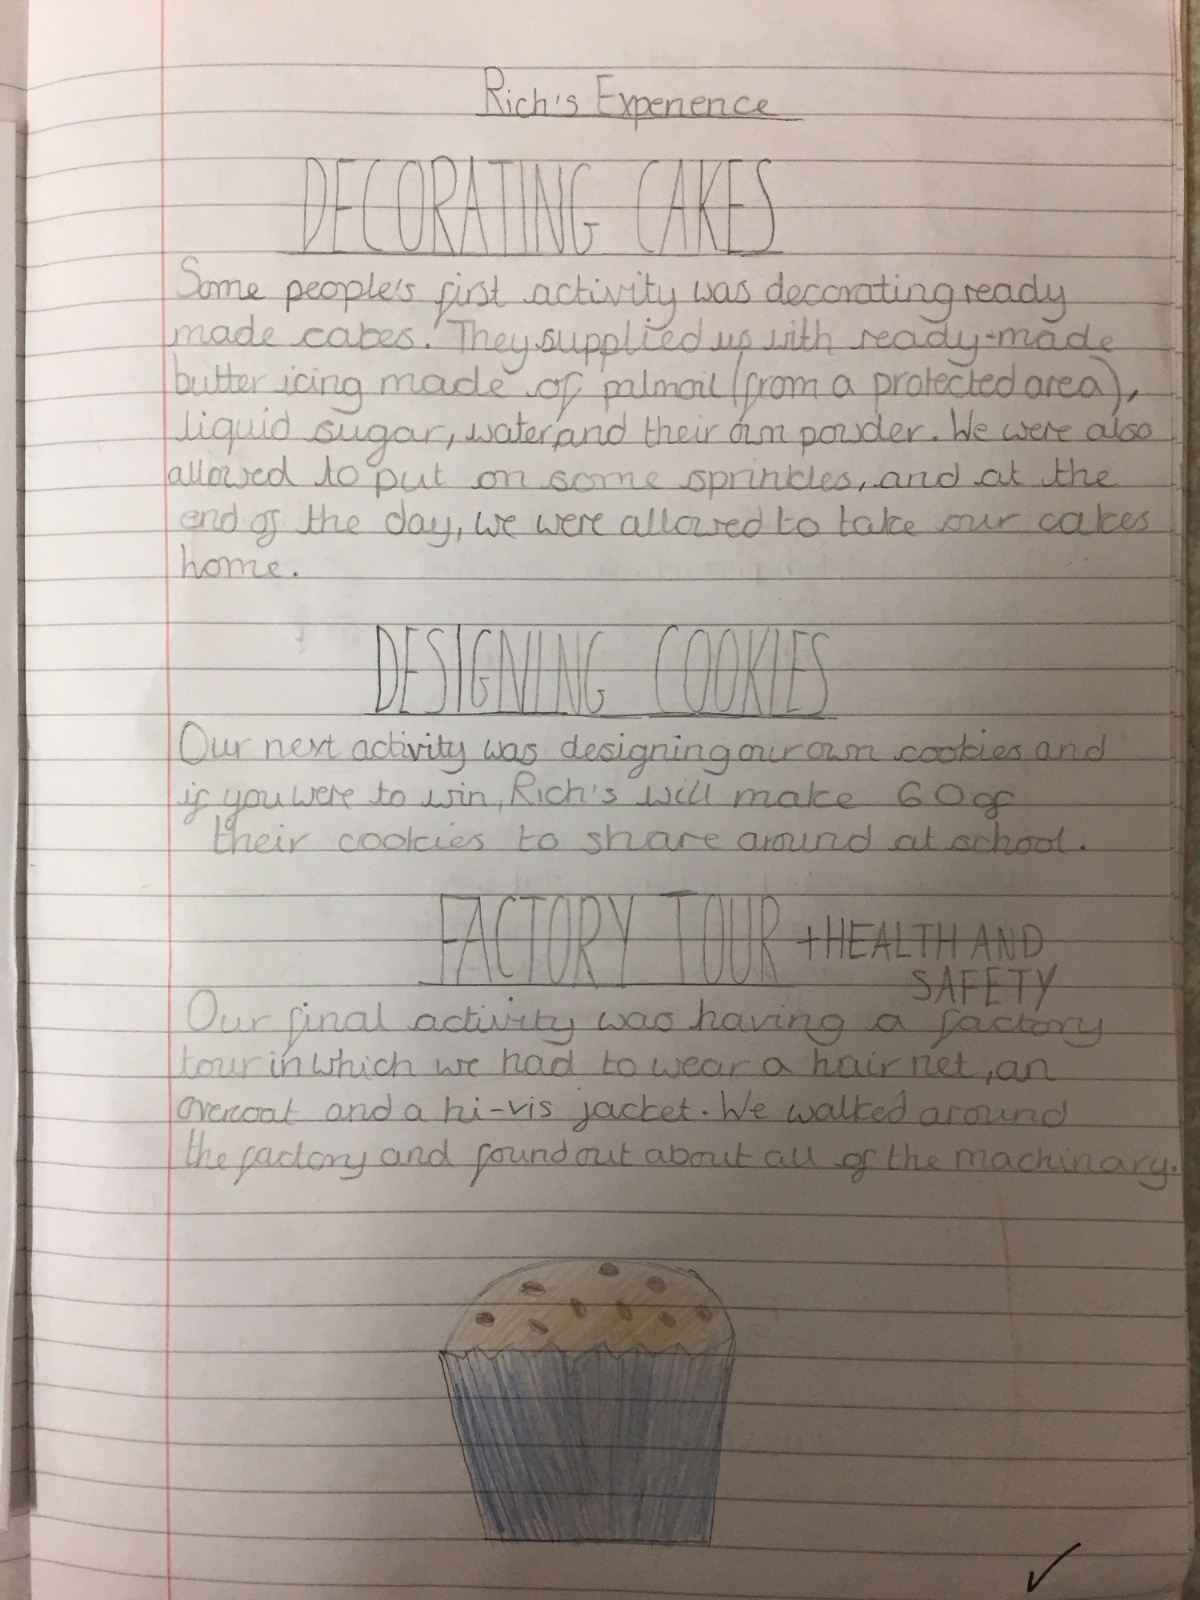 Rich's Experience
DECORATING CAKES
Some people's first activity was decorating ready
made cakes. They supplied us with ready-made
butter icing made of palmoil (from a protected area),
liquid sugar, water, and their own powder. We were also
allowed to put on some sprinkles, and at the
end of the day, we were allowed to take our cakes
home.
DESIGNING COOKIES
Our next activity was designing our own cookies and
if you were to win, Rich's will make 60 of
their cookies to share around at school.
FACTORY TOUR +HEALTH AND
SAFETY
Our final activity was having a factory
tour in which we had to wear a hair net, an
overcoat and a hi-vis jacket. We walked around
the factory and found out about all of the machinary.